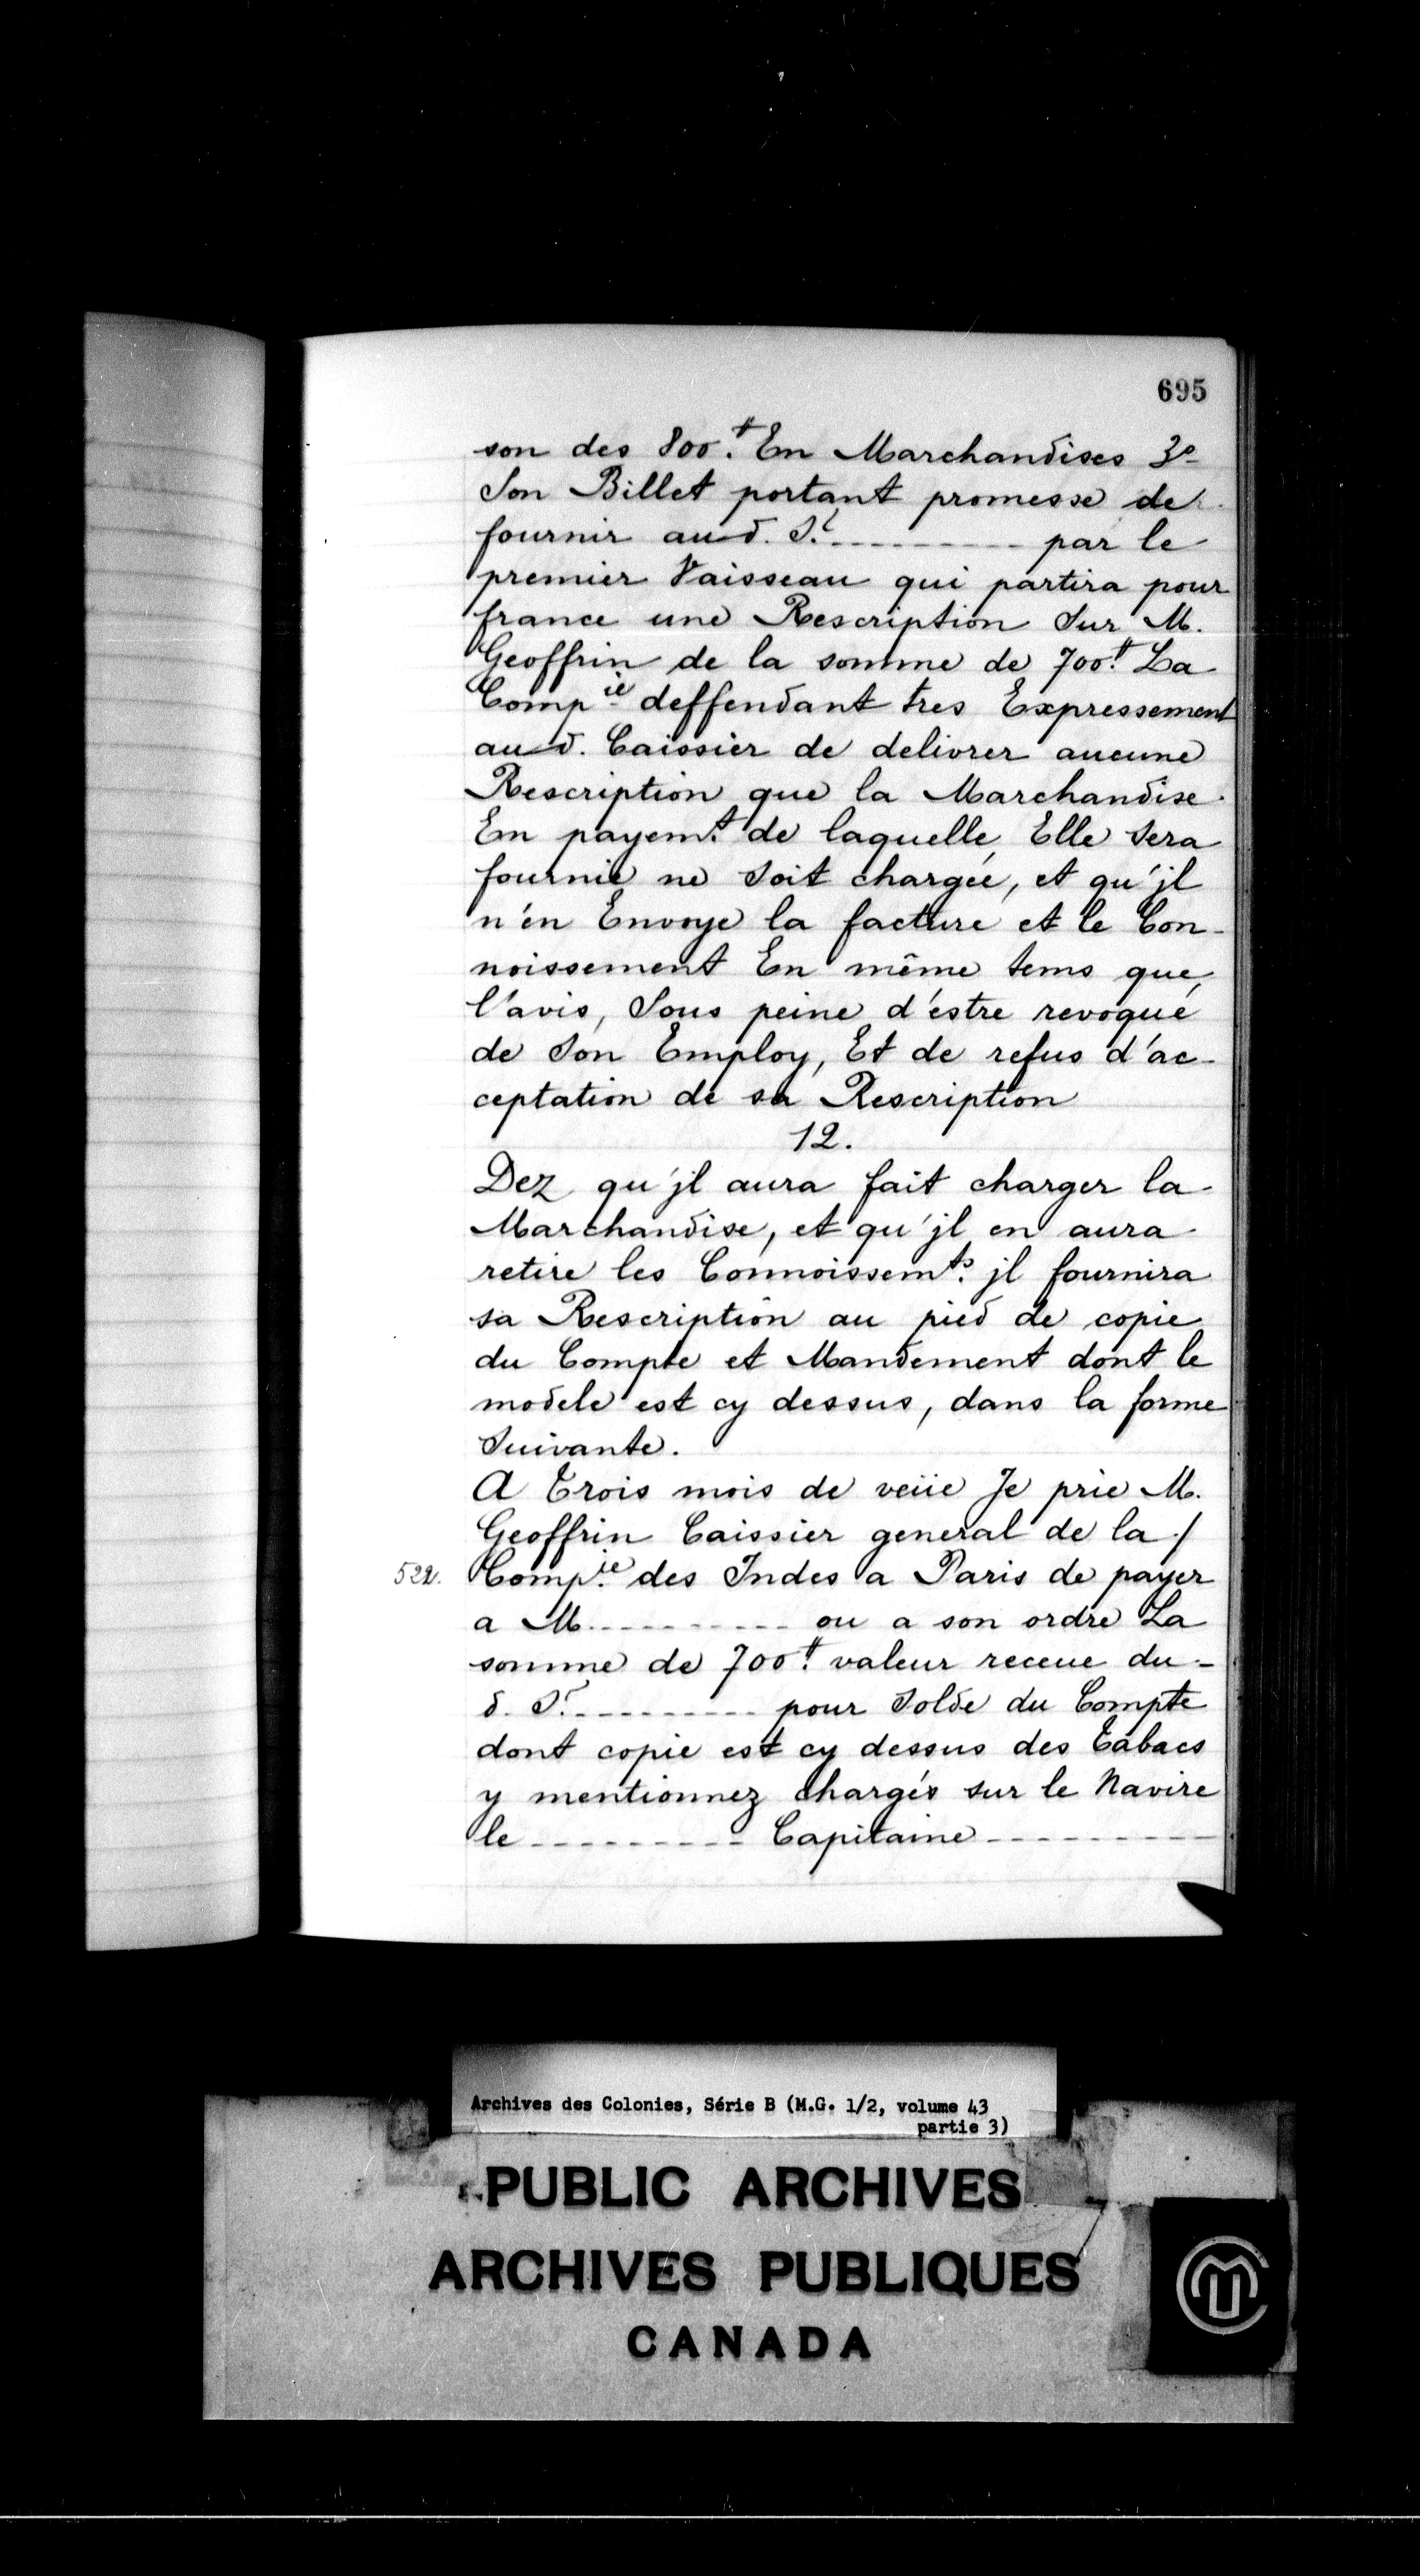 695
son des 800.₶ En Marchandises 3º
Son Billet portant promesse de
fournir aud. S.r ---------- par le
premier Vaisseau qui partira pour
france une Rescription Sur M.
Geoffrin de la somme de 700.₶ La
Comp.ie deffendant tres Expressement
aud. Caissier de delivrer aucune
Rescription que la Marchandise
En payem.t de laquelle Elle Sera
fournie ne Soit chargée, et qu'jl
n'en Envoye la facture et le Con-
noissement En même tems que
l'avis, Sous peine d'estre revoqué
de Son Employ, Et de refus d'ac-
ceptation de sa Rescription
12.
Dez qu'jl aura fait charger la
Marchandise, et qu'jl en aura
retire les Connoissem.ts jl fournira
sa Rescription au pied de copie
du Compte et Mandement dont le
modele est cy dessus, dans la forme
Suivante.
A Trois mois de veüe Je prie M.
Geoffrin Caissier general de la /
522. Comp.ie des Indes a Paris de payer
a M. ---------- ou a son ordre La
somme de 700.₶ valeur receue du-
d. S.r ---------- pour Solde du Compte
dont copie est cy dessus des Tabacs
y mentionnez chargés sur le Navire
le ---------- Capitaine ----------
Archives des Colonies, Série B (M.G. 1/2, volume 43
partie 3)
PUBLIC ARCHIVES
ARCHIVES PUBLIQUES
CANADA